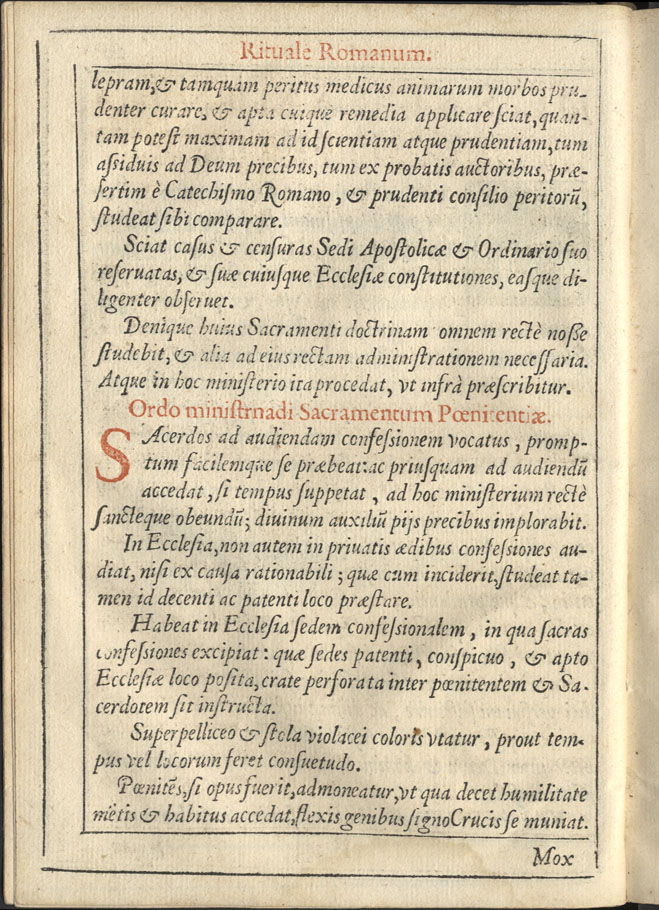 Rituale Romanum.
lepram, & tamquam peritus medicus animarum morbos pru-
denter curare, & apta cuique remedia applicare ſciat, quan-
tam poteſt maximam ad id ſcientiam atque prudentiam, tum
aſsiduis ad Deum precibus, tum ex probatis auctoribus, præ-
ſertim è Catechiſmo Romano, & prudenti conſilio peritorū,
ſtudeat ſibi comparare.
Sciat caſus & cenſuras Sedi Apoſtolicæ & Ordinario ſuo
reſeruatas, & ſuæ cuiuſque Eccleſiæ conſtitutiones, eaſque di-
ligenter obſeruet.
Denique huius Sacramenti doctrinam omnem rectè noſſe
ſtudebit, & alia ad eius rectam adminiſtrationem neceſſaria.
Atque in hoc miniſterio ita procedat, vt infrà præſcribitur.
Ordo miniſtrnadi Sacramentum Pœnitentiæ.
SAcerdos ad audiendam confeſsionem vocatus, promp-
tum facilemque ſe præbeat: ac priuſquam ad audiendū
accedat, ſi tempus ſuppetat, ad hoc miniſterium rectè
ſancteque obeundū; diuinum auxiliū pijs precibus implorabit.
In Eccleſia, non autem in priuatis ædibus confeſsiones au-
diat, niſi ex cauſa rationabili; quæ cum inciderit, ſtudeat ta-
men id decenti ac patenti loco præſtare.
Habeat in Eccleſia ſedem confeſsionalem, in qua ſacras
confeſsiones excipiat: quæ ſedes patenti, conſpicuo, & apto
Eccleſiæ loco poſita, crate perforata inter pœnitentem & Sa-
cerdotem ſit inſtructa.
Superpelliceo & ſtola violacei coloris vtatur, prout tem-
pus vel locorum feret conſuetudo.
Pœnitēs, ſi opus fuerit, admoneatur, vt qua decet humilitate
mētis & habitus accedat, flexis genibus ſigno Crucis ſe muniat.
Mox